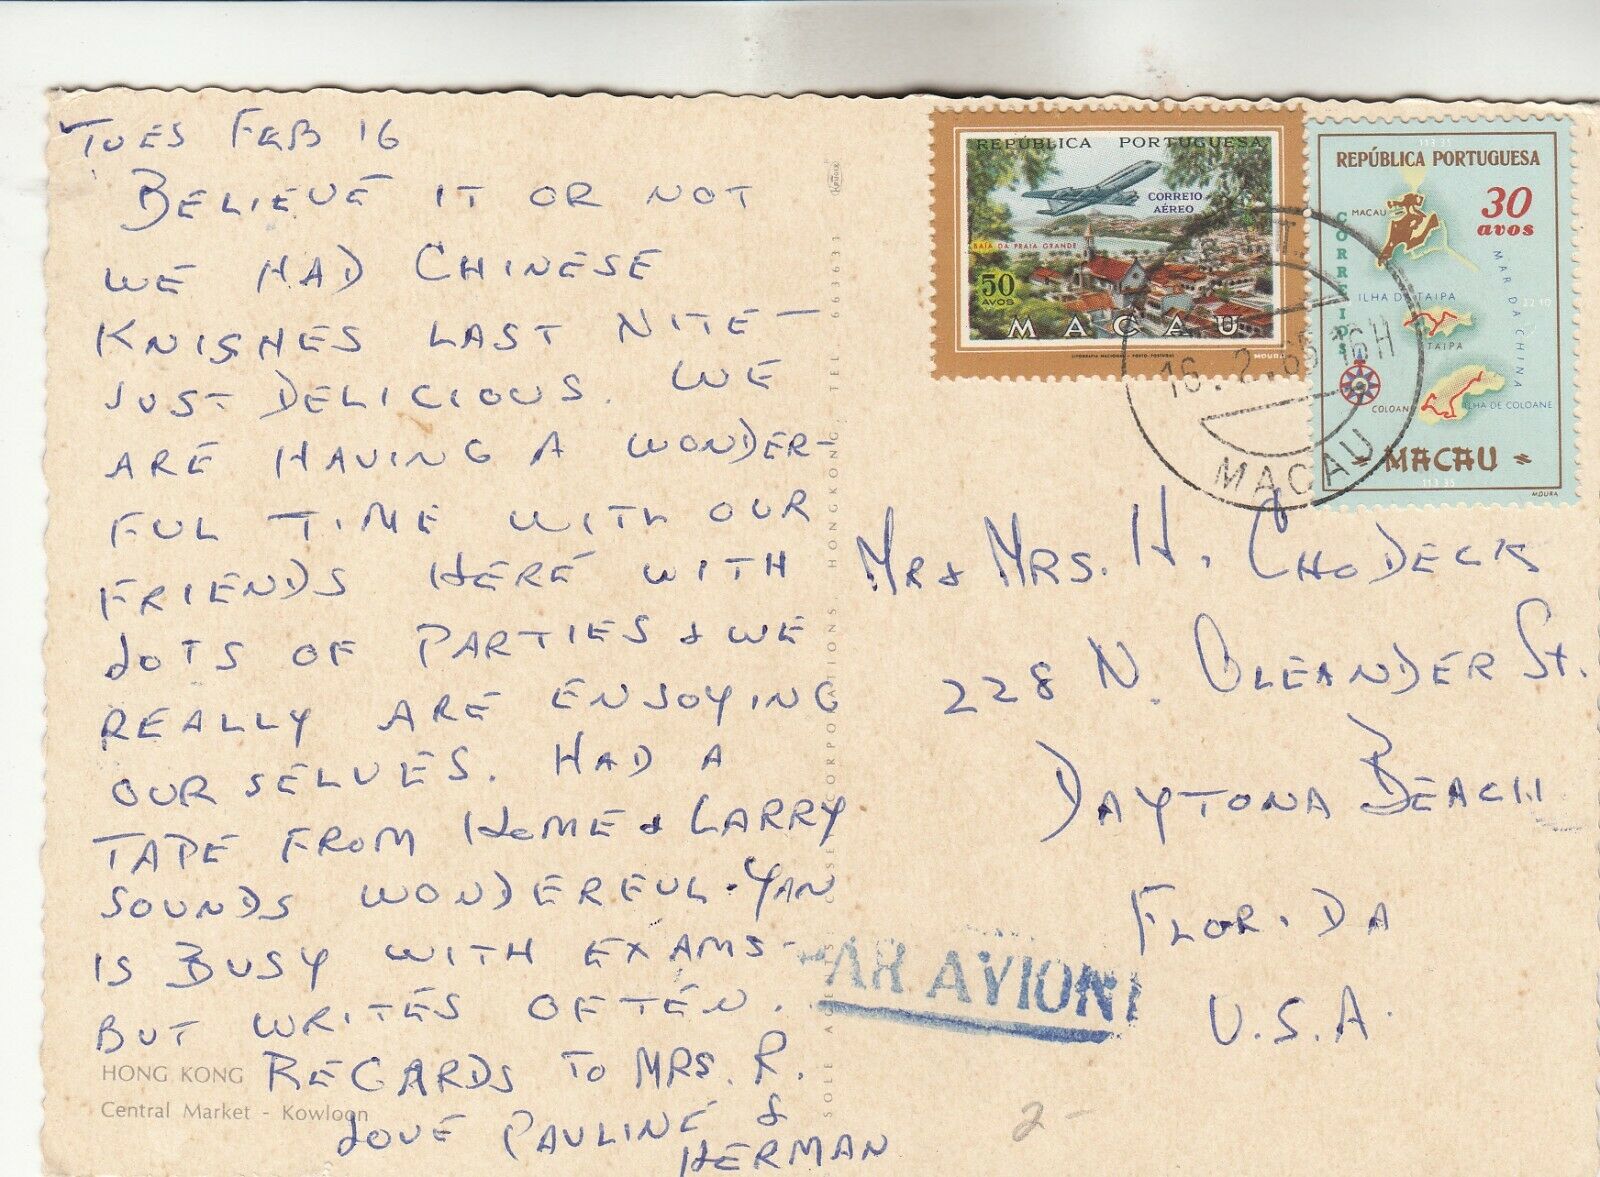 TUES FEB 16
BELIEVE IT OR NOT
WE HAD CHINESE
KNISHES LAST NITE-
JUST DELICIOUS. WE
ARE HAVING A WONDER-
FUL TIME WITH OUR
FRIENDS HERE WITH
LOTS OF PARTIES & WE
REALLY ARE ENJOYING
OUR SELVES. HAD A
TAPE FROM HOME & LARRY
SOUNDS WONDERFUL. YAN
IS BUSY WITH EXAMS-
BUT WRITES OFTEN.
REGARDS TO MRS. R.
LOVE PAULINE &
HERMAN
HONG KONG
Central Market - Kowloon
HONGKONG, TEL 663633
REPÚBLICA PORTUGUESA
CORREIO
AÉREO
BAÍA DA PRAIA GRANDE
50
AVOS
MACAU
LITOGRAFIA NACIONAL - PORTO PORTUGAL
MOURA
REPÚBLICA PORTUGUESA
30
avos
CORREIOS
MACAU
MAR DA CHINA
ILHA DA TAIPA
22.10
TAIPA
COLOANE
ILHA DE COLOANE
MACAU
113.35
MOURA
16.2.65 16H
MACAU
MR & MRS. H. CHODECK
228 N. OLEANDER St.
DAYTONA BEACH
FLORIDA
U.S.A.
PAR AVION
2-